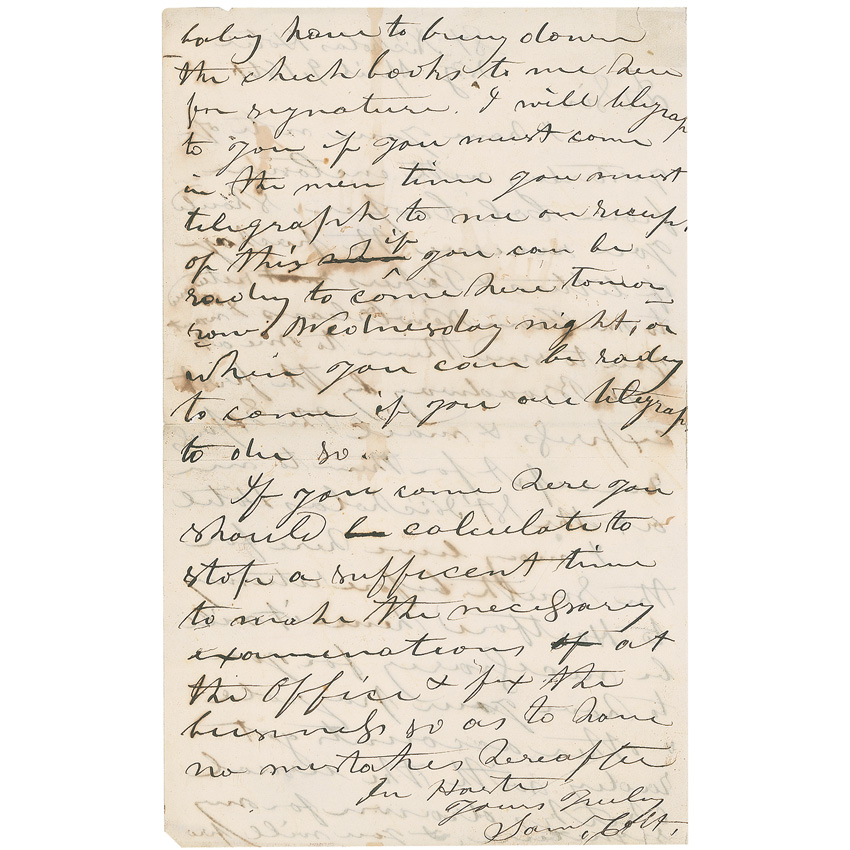 baby have to bring down
the check books to me here
for signature. I will telegrap
to you if you must come
in the men time you must
telegraph to me on recep.
of this if you can be
raday to come here tomor
row. Wednesday night, or
when you can be radey
to come if you are telegrap
to due so.
If you come here you
should be calculate to
stop a sufficent time
to make the necessary
examenations of at
the office & fix the
business so as to have
no mistakes hereafter
In Haste
Yours Truly
Saml. Colt.